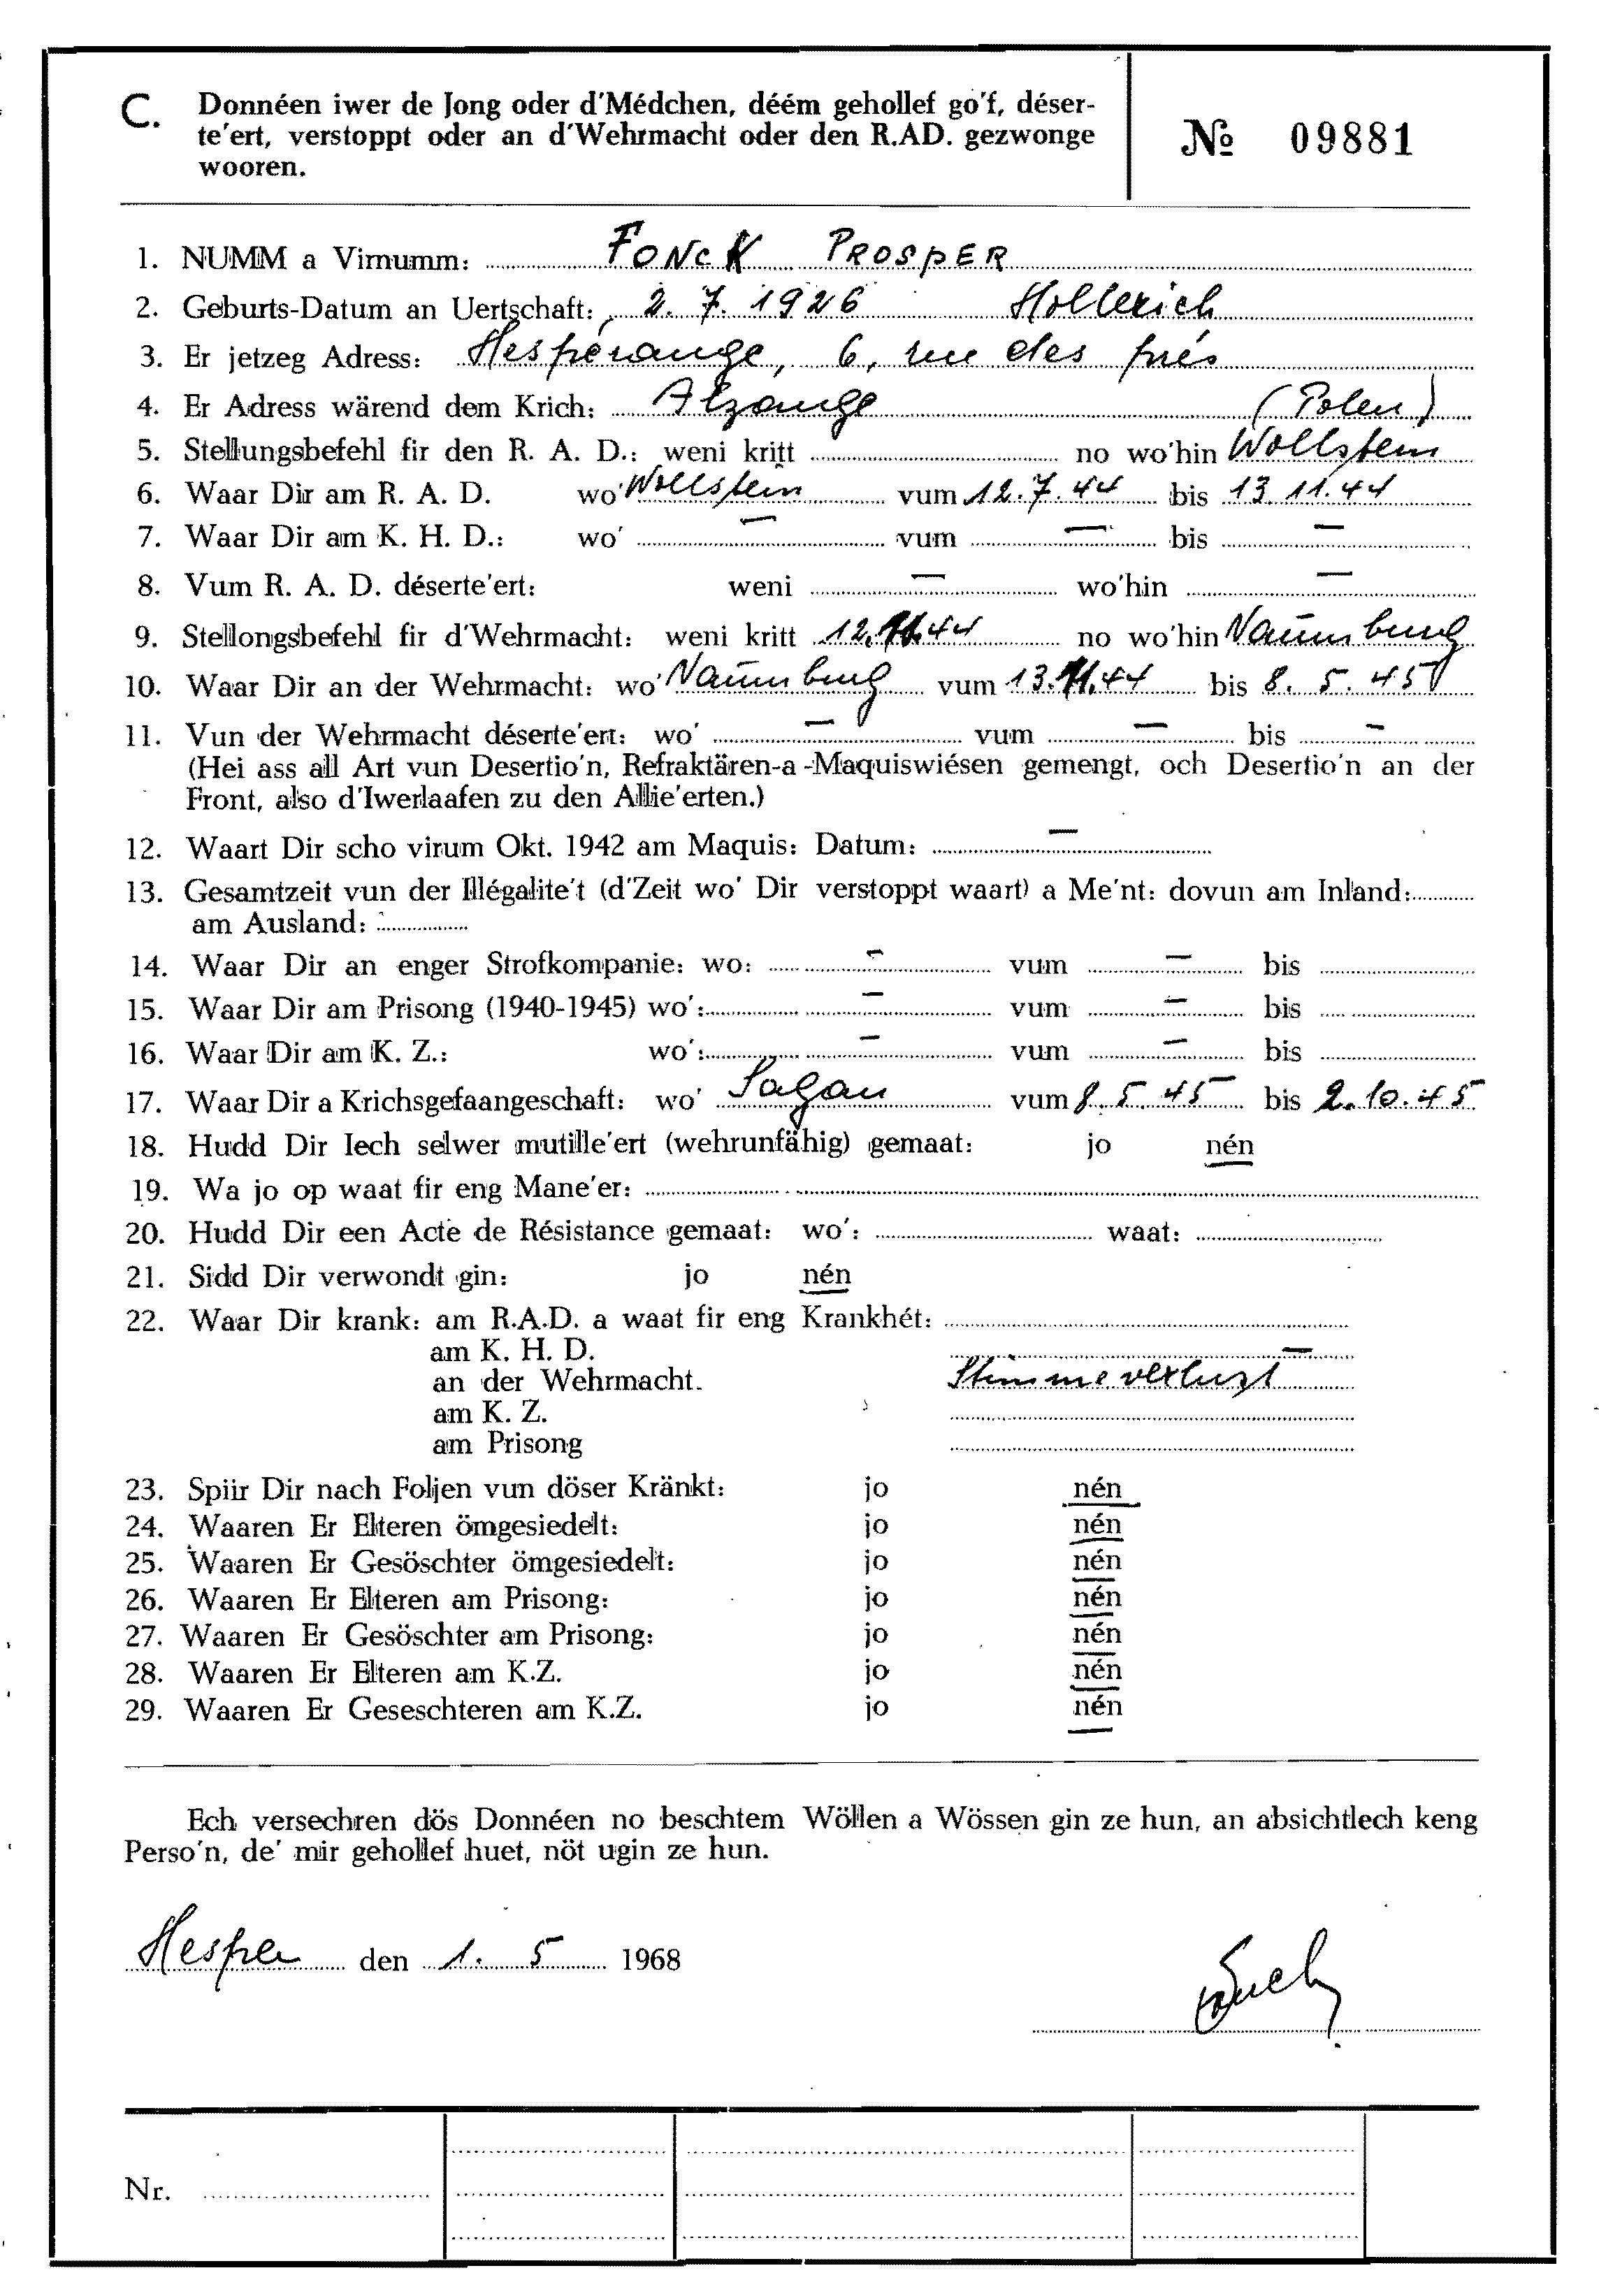 C. Donnéen iwer de Jong oder d'Médchen, déém gehollef go'f, déser-
te'ert, verstoppt oder an d'Wehrmacht oder den R.AD. gezwonge
wooren.
№ 09881
1. NUMM a Virnumm: FONCK PROSPER
2. Geburts-Datum an Uertschaft: 2. 7. 1926 Hollerich
3. Er jetzeg Adress: Hesperange, 6, rue des prés
4. Er Adress wärend dem Krich: Alzange (Polen)
5. Stellungsbefehl fir den R. A. D.: weni kritt no wo'hin Wollstein
6. Waar Dir am R. A. D. wo' Wollstein vum 12.7.44 bis 13 11.44
7. Waar Dir am K. H. D.: wo' — vum — bis —
8. Vum R. A. D. déserte'ert: weni — wo'hin —
9. Stellongsbefehl fir d'Wehrmacht: weni kritt 12.11.44 no wo'hin Naumburg
10. Waar Dir an der Wehrmacht: wo' Naumburg vum 13.11.44 bis 8. 5. 45
11. Vun der Wehrmacht déserte'ert: wo' — vum — bis —
(Hei ass all Art vun Desertio'n, Refraktären-a-Maquiswiésen gemengt, och Desertio'n an der
Front, also d'Iwerlaafen zu den Allie'erten.)
12. Waart Dir scho virum Okt. 1942 am Maquis: Datum: —
13. Gesamtzeit vun der Illégalite't (d'Zeit wo' Dir verstoppt waart) a Me'nt: dovun am Inland:
am Ausland:
14. Waar Dir an enger Strofkompanie: wo: — vum — bis
15. Waar Dir am Prisong (1940-1945) wo': — vum — bis
16. Waar Dir am K. Z.: wo': — vum — bis
17. Waar Dir a Krichsgefaangeschaft: wo' Sagan vum 8. 5. 45 bis 2.10.45
18. Hudd Dir Iech selwer mutille'ert (wehrunfähig) gemaat: jo nén
19. Wa jo op waat fir eng Mane'er:
20. Hudd Dir een Acte de Résistance gemaat: wo': waat:
21. Sidd Dir verwondt gin: jo nén
22. Waar Dir krank: am R.A.D. a waat fir eng Krankhét:
am K. H. D. —
an der Wehrmacht. Stimmeverlust
am K. Z.
am Prisong
23. Spiir Dir nach Foljen vun döser Kränkt: jo nén
24. Waaren Er Elteren ömgesiedelt: jo nén
25. Waaren Er Gesöschter ömgesiedelt: jo nén
26. Waaren Er Elteren am Prisong: jo nén
27. Waaren Er Gesöschter am Prisong: jo nén
28. Waaren Er Elteren am K.Z. jo nén
29. Waaren Er Geseschteren am K.Z. jo nén
Ech versechren dös Donnéen no beschtem Wöllen a Wössen gin ze hun, an absichtlech keng
Perso'n, de' mir gehollef huet, nöt ugin ze hun.
Hesper den 1. 5 1968
Nr.